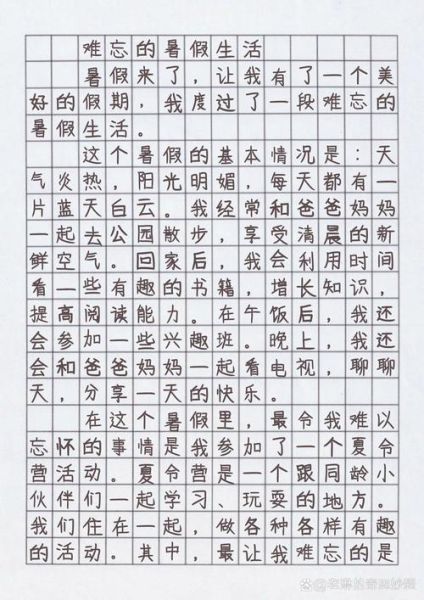 难忘的暑假生活
暑假来了，让我有了一个美
好的假期，我度过了一段难忘的
暑假生活。
这个暑假的基本情况是：天
气炎热，阳光明媚，每天都有一
片蓝天白云。我经常和爸爸妈妈
一起去公园散步，享受清晨的新
鲜空气。回家后，我会利用时间
看一些有趣的书籍，增长知识，
提高阅读能力。在午饭后，我还
会参加一些兴趣班。晚上，我还
会和爸爸妈妈一起看电视，聊聊
天，分享一天的快乐。
在这个暑假里，最令我难以
忘怀的事情是我参加了一个夏令
营活动。夏令营是一个跟同龄小
伙伴们一起学习、玩耍的地方。
我们住在一起，做各种各样有趣
的活动。其中，最让我难忘的是